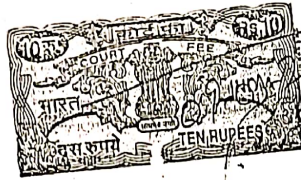 10रु. Rs.10
COURT FEE
भारत INDIA
दस रुपये TEN RUPEES